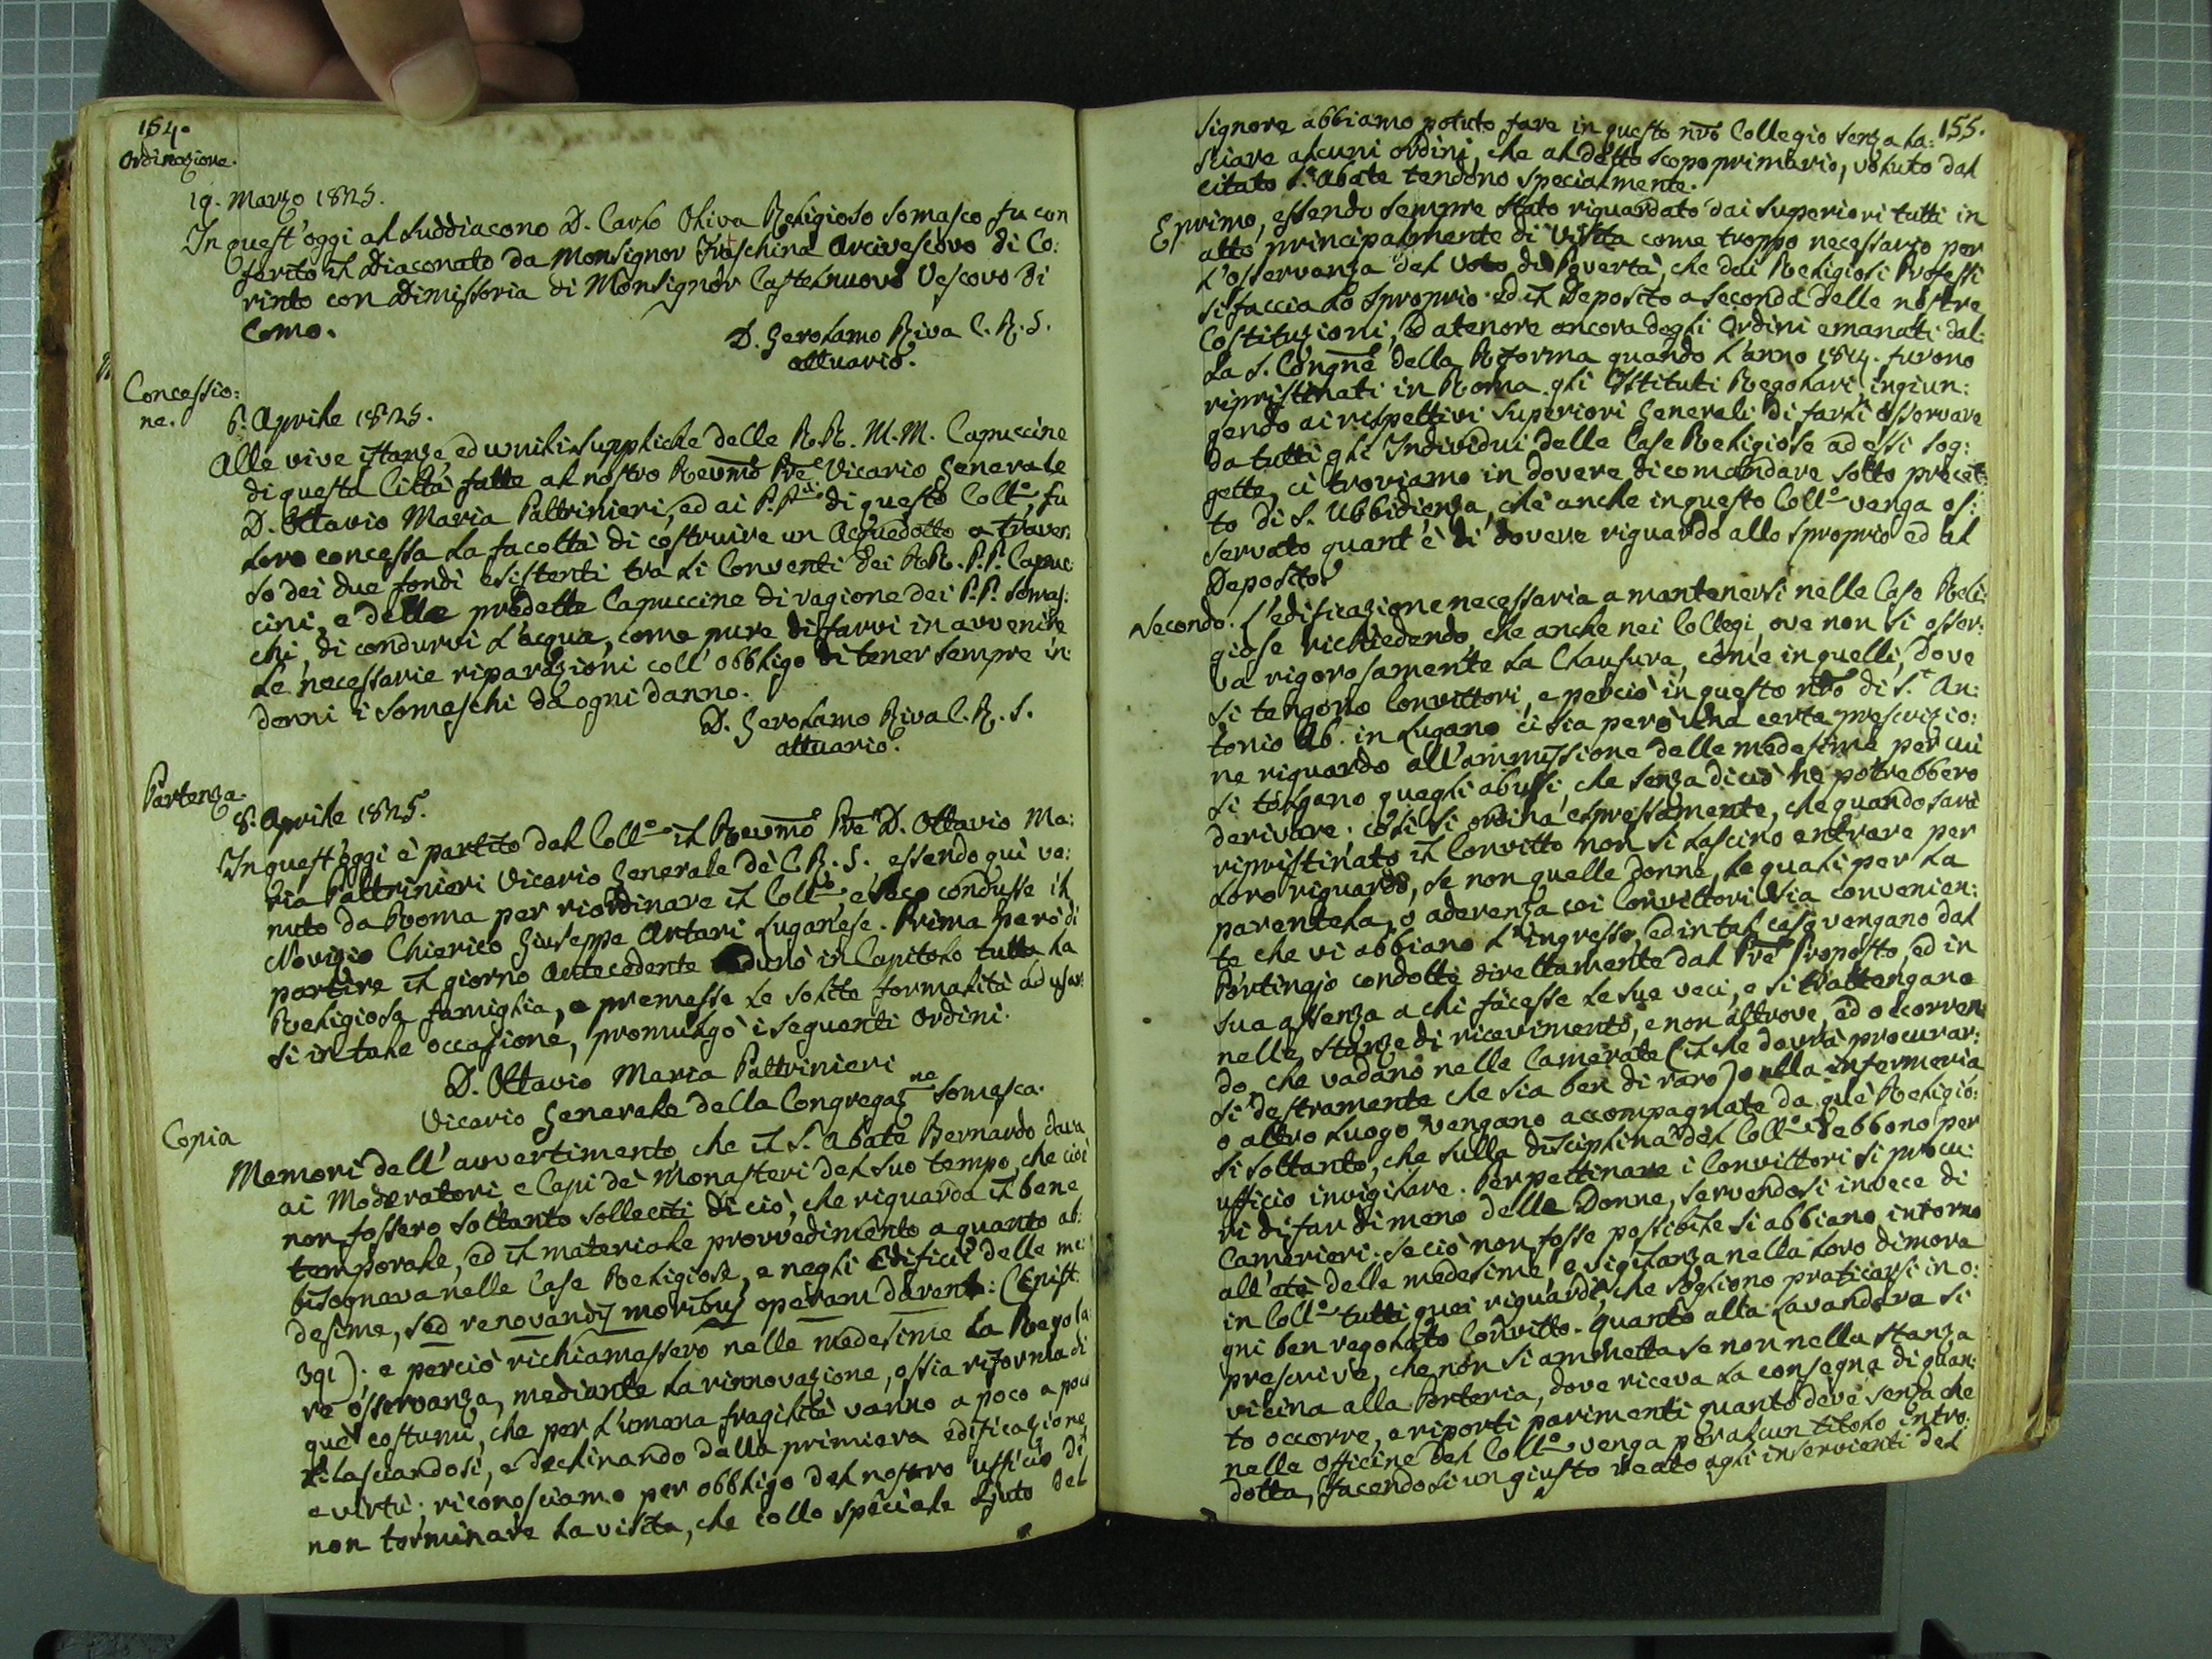 154.
Ordinazione.
19. Marzo 1825.
In quest'oggi al Suddiacono D. Carlo Oliva Religioso Somasco fu con
ferito il Diaconato da Monsignor Fraschina Arcivescovo di Co:
rinto con Dimissoria di Monsignor Castelnuovo Vescovo di
Como.
D. Gerolamo Riva C. R. S.
attuario.
Concessio:
ne.
6. Aprile 1825.
Alle vive istanze, ed umili suppliche delle R.R. M.M. Capuccine
di questa Città fatte al nostro Revmo Pre Vicario Generale
D. Ottavio Maria Paltrinieri, ed ai P.P. di questo Collo, fu
loro concessa la facoltà di costruire un Acquedotto a traver:
so dei due fondi esistenti tra li Conventi dei R.R. P.P. Capuc:
cini, e delle predette Capuccine di ragione dei P.P. Somas:
chi, di condurvi l'acqua, come pure di farvi in avvenire
le necessarie riparazioni coll'obbligo di tener sempre in:
denni i Somaschi da ogni danno.
D. Gerolamo Riva C. R. S.
attuario.
Partenza.
8. Aprile 1825.
In quest'oggi è partito dal Collo il Revmo Pre D. Ottavio Ma:
ria Paltrinieri Vicario Generale de' C. R. S. essendo quì ve:
nuto da Roma per riordinare il Collo, e seco condusse il
Novizio Chierico Giuseppe Artari Luganese. Prima però di
partire il giorno antecedente adunò in Capitolo tutta la
Religiosa famiglia, e premesse le solite formalità ad usar:
si in tale occasione, promulgò i seguenti Ordini.
D. Ottavio Maria Paltrinieri
Vicario Generale della Congregazne Somasca.
Copia
Memori dell'avvertimento, che il S. Abate Bernardo dava
ai Moderatori, e Capi de' Monasteri del suo tempo, che cioè
non fossero soltanto solleciti di ciò, che riguarda il bene
temporale, ed il materiale provvedimento a quanto ab:
bisognava nelle Case Religiose, e negli Edificii delle me:
desime, sed renovandis moribus operam darent: (Epist.
391): e perciò richiamassero nelle medesime la Regola:
re osservanza, mediante la rinnovazione, ossia riforma di
que' costumi, che per l'umana fragilità vanno a poco a poco
rilasciandosi, e declinando dalla primiera edificazione
e virtù; riconosciamo per obbligo del nostro ufficio di
non terminare la visita, che collo speciale ajuto del
155.
Signore abbiamo potuto fare in questo nro Collegio senza la:
sciare alcuni ordini, che al detto scopo primario, voluto dal
citato S. Abate tendono specialmente.
E primo, essendo sempre stato riguardato dai Superiori tutti in
atto principalmente di Visita come troppo necessario per
l'osservanza del Voto di Povertà, che dai Religiosi Professi
si faccia lo sproprio ed il Deposito a seconda delle nostre
Costituzioni, ed a tenore ancora degli Ordini emanati dal:
la S. Congne della Riforma quando l'anno 1814. furono
ripristinati in Roma gli Istituti Regolari, ingiun:
gendo ai rispettivi Superiori Generali di farli osservare
da tutti gli Individui delle Case Religiose ad essi sog:
gette, ci troviamo in dovere di comandare sotto precet:
to di S. Ubbidienza, che anche in questo Collo venga os:
servato quant'è di dovere riguardo allo sproprio ed al
Deposito.
Secondo. L'edificazione necessaria a mantenersi nelle Case Reli:
giose richiedendo, che anche nei Collegi, ove non si osser:
va rigorosamente la Clausura, come in quelli, dove
si tengono Convittori, e perciò in questo nro di S. An:
tonio Ab. in Lugano ci sia però una certa prescrizio:
ne riguardo all'ammissione delle medesime per cui
si tolgano quegli abusi, che senza di ciò ne potrebbero
derivare; così si ordina espressamente, che quando sarà
ripristinato il Convitto non si lascino entrare per
loro riguardo, se non quelle donne, le quali per la
parentela, o aderenza coi Convittori sia convenien:
te che vi abbiano l'ingresso, ed in tal caso vengano dal
Portinajo condotte direttamente dal Pre Proposto, ed in
sua assenza a chi facesse le sue veci, e si trattengano
nelle stanze di ricevimento, e non altrove, ed occorren:
do, che vadano nelle Camerate (il che dovrà procurar:
si destramente che sia ben di raro) o alla infermeria
o altro luogo vengano accompagnate da que' Religio:
si soltanto, che sulla disciplina del Collo debbono per
ufficio invigilare. Per pettinare i Convittori si procu:
ri di far di meno delle Donne, servendosi invece di
Camerieri: se ciò non fosse possibile si abbiano intorno
all'età delle medesime, e vigilanza nella loro dimora
in Collo tutti quei riguardi, che sogliono praticarsi in o:
gni ben regolato Convitto. Quanto alla Lavandara si
prescrive, che non si ammetta se non nella stanza
vicina alla Porteria, dove riceva la consegna di quan:
to occorre, e riporti parimenti quanto deve senza che
nelle Officine del Collo venga per alcun titolo intro:
dotta, facendosi un giusto reato agli inservienti del